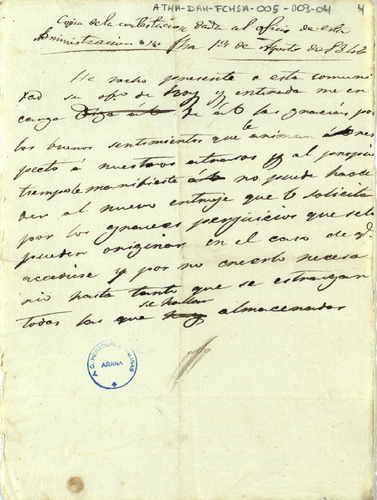 ATHA-DAH-FCHSA-005-003-04
4
Copia de la contestacion dada al oficio de esta
Administracion fha 1º de Agosto de 1842
He hecho presente a esta comuni
dad su ofº de hoy y enterada me en
carga Diga á de á las gracias por
los buenos sentimientos que le animan res
pecto á nuestros atrasos y al propio
tiempo le manifieste á no puede hacce
der al nuevo entruje que le solicita
por los graves perjuicios que se le
pueden originar en el caso de
accedirse y por no creerlo necesa
rio hasta tanto que se estraigan
se hallan
todas las que hay almacenadas
ARANA